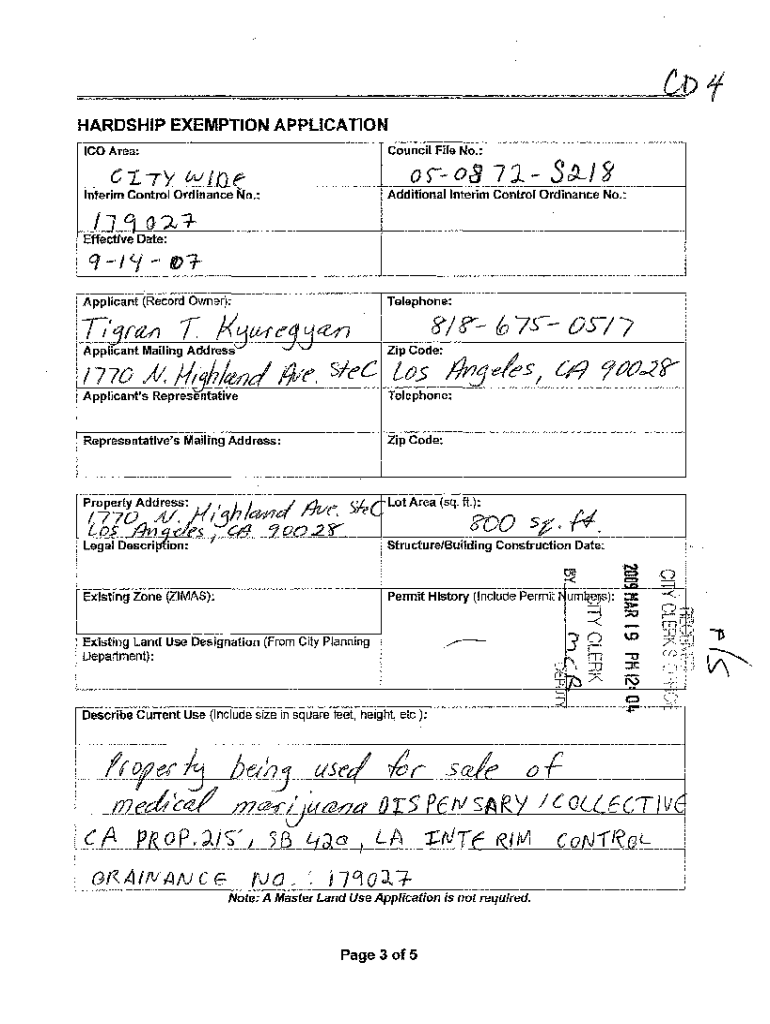 CD 4
HARDSHIP EXEMPTION APPLICATION
ICO Area:
CITY WIDE
Council File No.:
05-0872-S218
Interim Control Ordinance No.:
179027
Additional Interim Control Ordinance No.:
Effective Date:
9-14-07
Applicant (Record Owner):
Tigran T. Kyuregyan
Telephone:
818-675-0517
Applicant Mailing Address
1770 N. Highland Ave. Ste C
Zip Code:
Los Angeles, CA 90028
Applicant's Representative
Telephone:
Representative's Mailing Address:
Zip Code:
Property Address:
1770 N. Highland Ave. Ste C
Los Angeles, CA 90028
Lot Area (sq. ft.):
800 sq. ft.
Legal Description:
Structure/Building Construction Date:
Existing Zone (ZIMAS):
Permit History (Include Permit Numbers):
Existing Land Use Designation (From City Planning
Department):
CITY CLERK'S OFFICE
2009 MAR 19 PM 12:04
CITY CLERK
BY
DEPUTY
Describe Current Use (Include size in square feet, height, etc.):
Property being used for sale of
medical marijuana DISPENSARY / COLLECTIVE
CA PROP. 215, SB 420, LA INTERIM CONTROL
ORAINANCE NO.: 179027
Note: A Master Land Use Application is not required.
Page 3 of 5